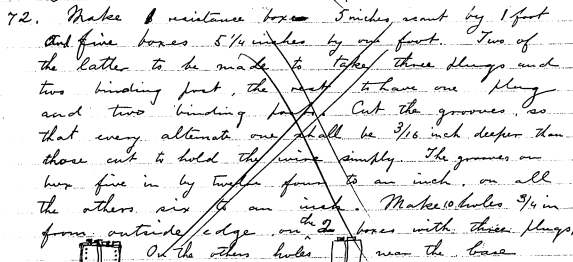 72. Make 1 resistance box 5 inches, scant by 1 foot
and five boxes 5 1/4 inches by one foot. Two of
the latter to be made to take three plugs and
two binding post, the rest to have one plug
and two binding posts. Cut the grooves, so
that every alternate one shall be 3/16 inch deeper than
those cut to hold the wire simply. The grooves on
box five in by twelve four to an inch, on all
the others six to an inch. Make 10 holes 3/4 in
from outside edge on the 2 boxes with three plugs,
On the others holes near the base